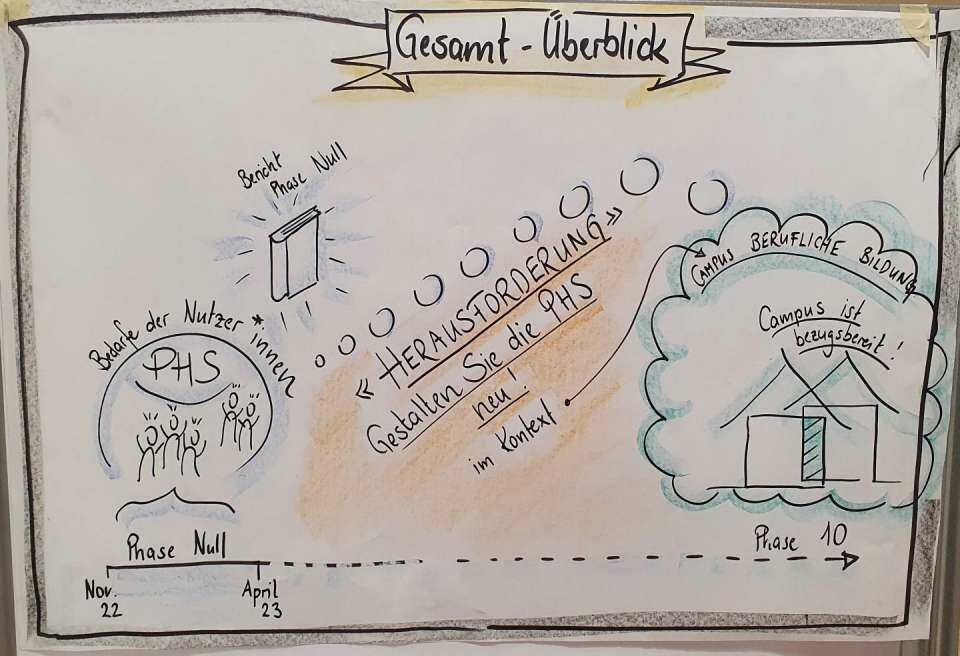 Gesamt-Überblick
Bericht
Phase Null
Bedarfe der Nutzer*innen
PHS
« HERAUSFORDERUNG »
Gestalten Sie die PHS
neu!
im Kontext
CAMPUS BERUFLICHE BILDUNG
Campus ist
bezugsbereit!
Phase Null
Phase 10
Nov.
22
April
23